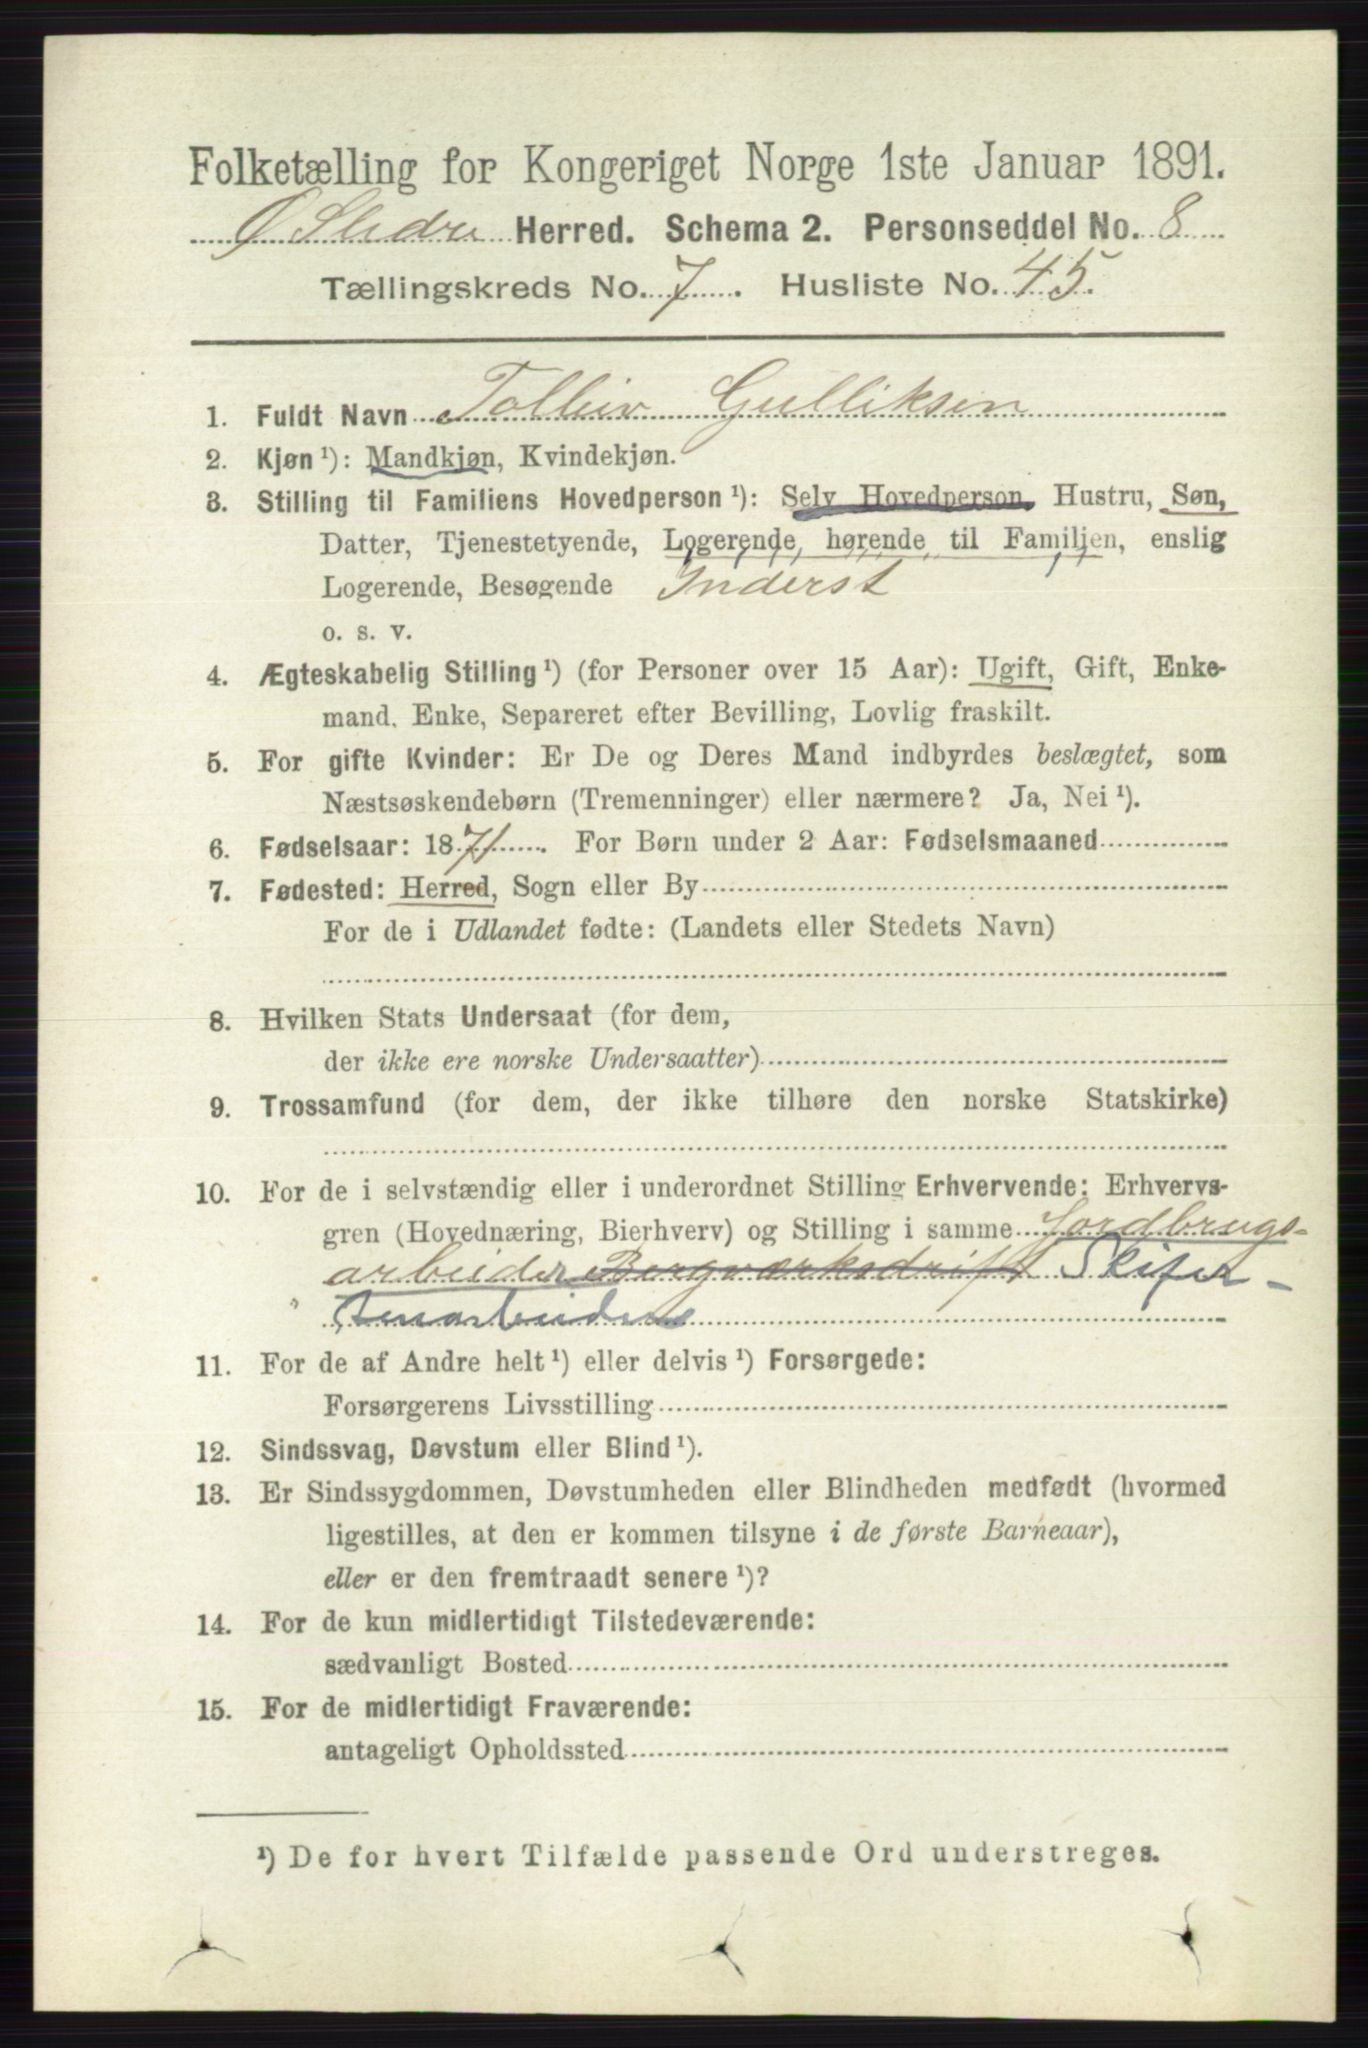 Folketælling for Kongeriget Norge 1ste Januar 1891.
Ø Slidre Herred. Schema 2. Personseddel No. 8
Tællingskreds No. 7. Husliste No. 45.
1. Fuldt Navn Tolleiv Gulliksen
2. Kjøn ¹): Mandkjøn, Kvindekjøn.
3. Stilling til Familiens Hovedperson ¹): Selv Hovedperson, Hustru, Søn,
Datter, Tjenestetyende, Logerende, hørende til Familien, enslig
Logerende, Besøgende Inderst
o. s. v.
4. Ægteskabelig Stilling ¹) (for Personer over 15 Aar): Ugift, Gift, Enke-
mand, Enke, Separeret efter Bevilling, Lovlig fraskilt.
5. For gifte Kvinder: Er De og Deres Mand indbyrdes beslægtet, som
Næstsøskendebørn (Tremenninger) eller nærmere? Ja, Nei ¹).
6. Fødselsaar: 1871. For Børn under 2 Aar: Fødselsmaaned
7. Fødested: Herred, Sogn eller By
For de i Udlandet fødte: (Landets eller Stedets Navn)
8. Hvilken Stats Undersaat (for dem,
der ikke ere norske Undersaatter)
9. Trossamfund (for dem, der ikke tilhøre den norske Statskirke)
10. For de i selvstændig eller i underordnet Stilling Erhvervende: Erhvervs-
gren (Hovednæring, Bierhverv) og Stilling i samme Jordbrugs-
arbeider Bergværksdrift Skifer-
stenarbeider
11. For de af Andre helt ¹) eller delvis ¹) Forsørgede:
Forsørgerens Livsstilling
12. Sindssvag, Døvstum eller Blind ¹).
13. Er Sindssygdommen, Døvstumheden eller Blindheden medfødt (hvormed
ligestilles, at den er kommen tilsyne i de første Barneaar),
eller er den fremtraadt senere ¹)?
14. For de kun midlertidigt Tilstedeværende:
sædvanligt Bosted
15. For de midlertidigt Fraværende:
antageligt Opholdssted
¹) De for hvert Tilfælde passende Ord understreges.